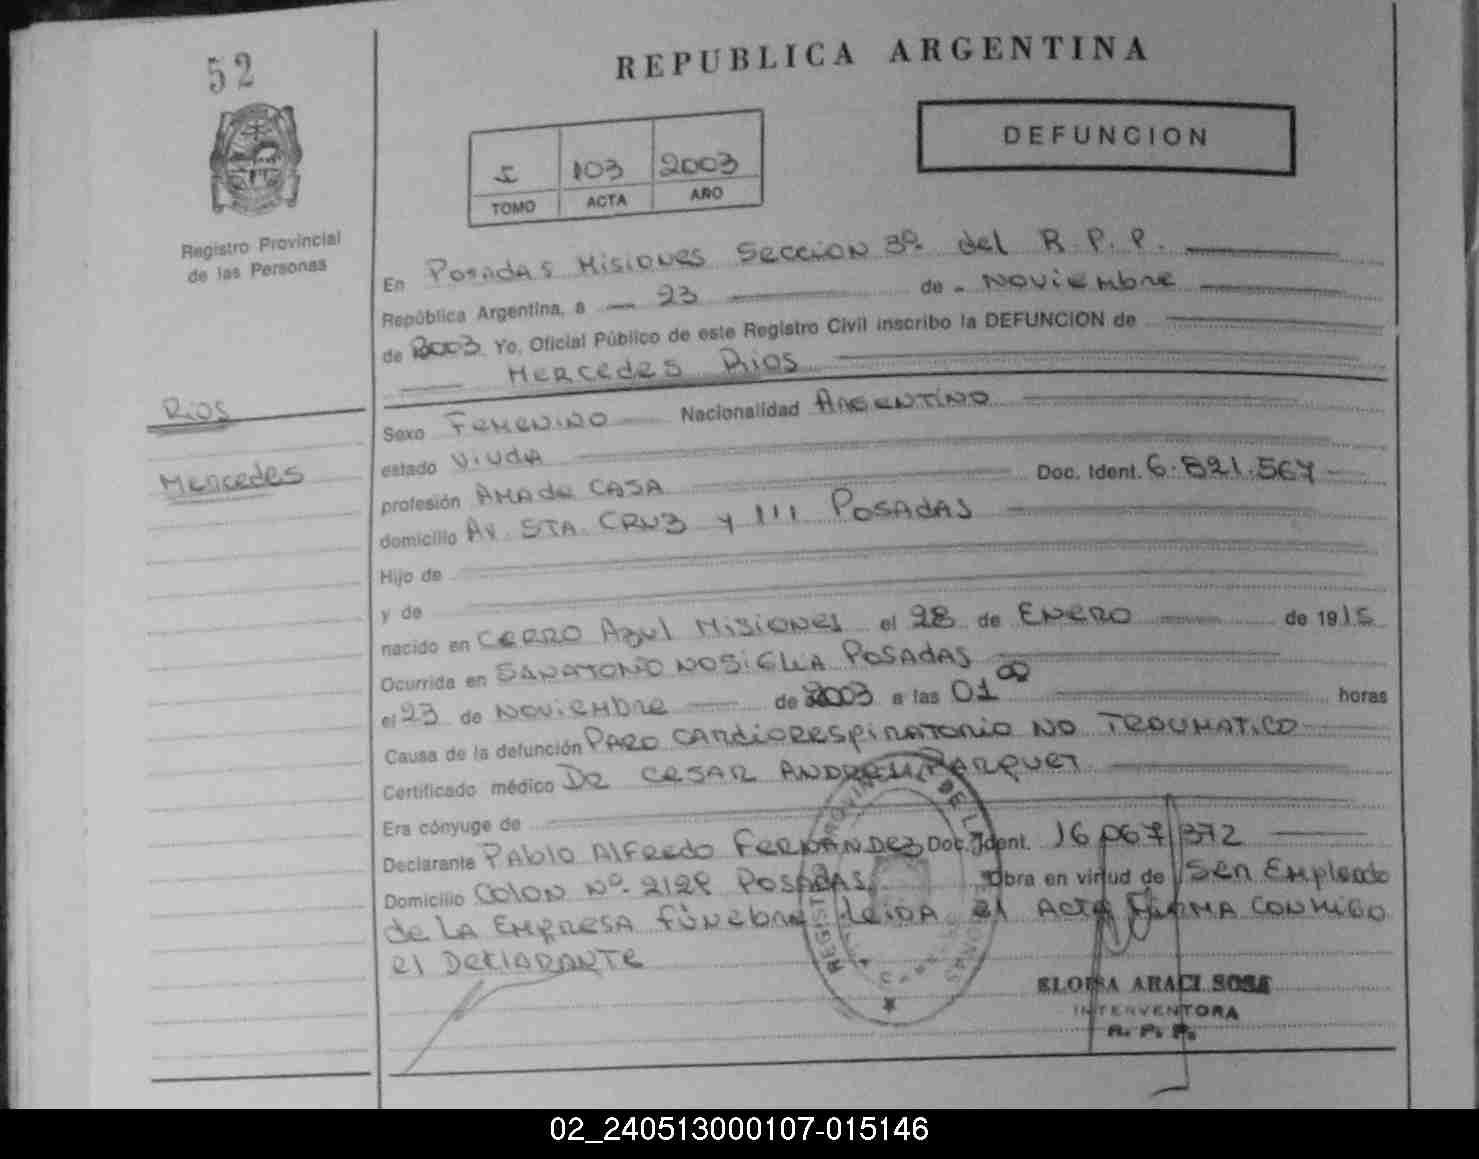 52
REPUBLICA ARGENTINA
DEFUNCION
I 103 2003
TOMO ACTA AÑO
Registro Provincial
de las Personas
En Posadas Misiones Seccion 3º del R.P.P.
República Argentina, a 23 de Noviembre
de 2003 Yo, Oficial Público de este Registro Civil inscribo la DEFUNCION de
Mercedes Rios
Rios
Mercedes
Sexo Femenino Nacionalidad Argentino
estado Viuda
profesión Ama de CASA Doc. Ident. 6.821.567
domicilio AV. STA. CRUZ y 111 POSADAS
Hijo de
y de
nacido en CERRO Azul Misiones el 28 de ENERO de 1915
Ocurrida en SANATORIO NOSIGLIA POSADAS
el 23 de Noviembre de 2003 a las 01 00 horas
Causa de la defunción PARO CARDIORESPIRATORIO NO TROUMATICO
Certificado médico DR CESAR ANDREU
Era cónyuge de
Declarante PABLO Alfredo FERNANDEZ Doc. Ident. 16 067 372
Domicilio COLON Nº 2129 POSADAS Obra en virtud de Ser Empleado
de LA EMPRESA fúnebre leida el ACTA FIRMA CONMIGO
el DECLARANTE
ELOISA ARACI SOSA
INTERVENTORA
R. P. P.
02_240513000107-015146